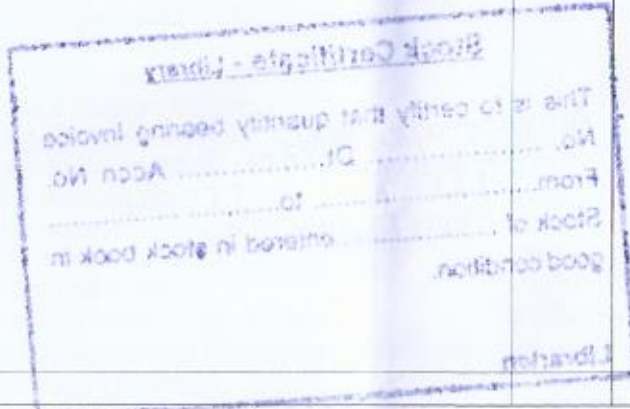 Stock Certificate - Library
This is to certify that quantity bearing Invoice
No. .................. Dt. .................. Accn No.
From.................. to..................
Stock of .................. entered in stock book in
good condition.
Librarian